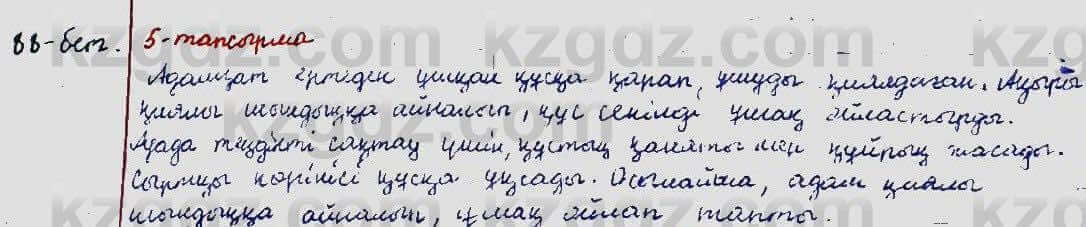 88-бет. 5-тапсырма
Адамзат ертеден ұшқан құсқа қарап, ұшуды қиялдаған. Ақыры
қиялы шындыққа айналып, құс сенімді ұшақ ойластырды.
Ауада теңдікті сақтау үшін, құстың қанаты мен құйрық жасады.
Сыртқы көрінісі құсқа ұқсады. Осылайша, адам қиялы
шындыққа айналып, ұшақ ойлап тапты.